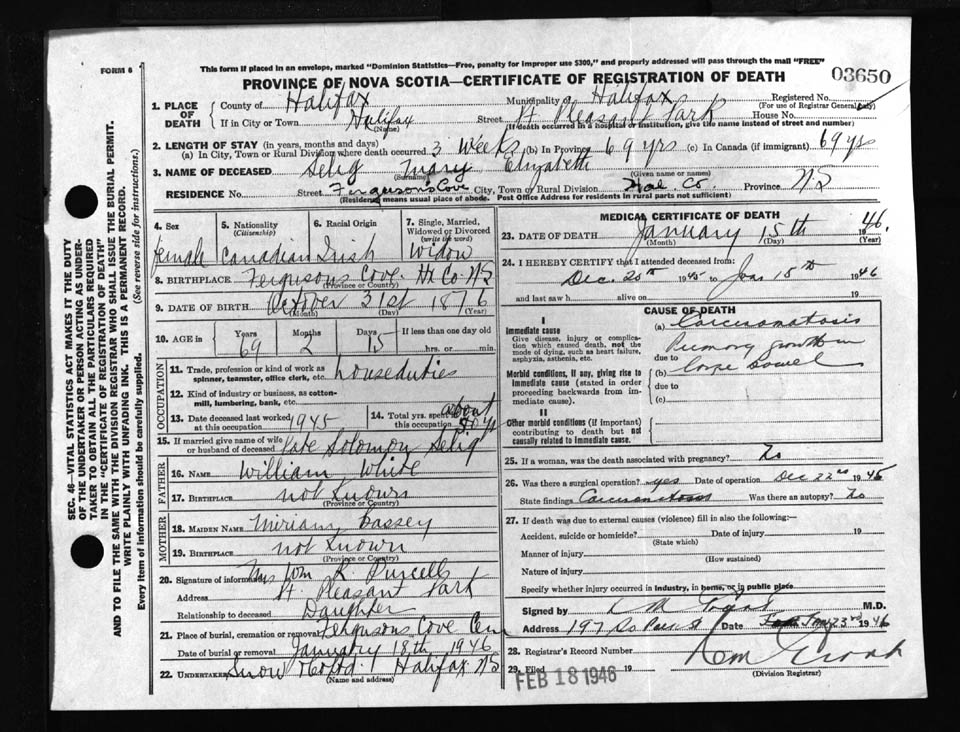 This form if placed in an envelope, marked "Dominion Statistics—Free, penalty for improper use $300," and properly addressed will pass through the mail "FREE"
FORM 6
PROVINCE OF NOVA SCOTIA—CERTIFICATE OF REGISTRATION OF DEATH
03650
1. PLACE OF DEATH
County of Halifax Municipality of Halifax Registered No.
(For use of Registrar General only)
If in City or Town Halifax Street Pt Pleasant Park House No.
(Name) (If death occurred in a hospital or institution, give the name instead of street and number)
2. LENGTH OF STAY (in years, months and days)
(a) In City, Town or Rural Division where death occurred 3 Weeks (b) In Province 69 yrs (c) In Canada (if immigrant) 69 yrs
3. NAME OF DECEASED Selig Mary Elizabeth
(Surname) (Given name or names)
RESIDENCE No. Street Ferguson's Cove City, Town or Rural Division Hal. Co. Province NS
(Residence means usual place of abode. Post Office Address for residents in rural parts not sufficient)
4. Sex
female
5. Nationality
(Citizenship)
Canadian
6. Racial Origin
Irish
7. Single, Married, Widowed or Divorced
(write the word)
Widow
8. BIRTHPLACE Fergusons Cove. Hx Co NS
(Province or Country)
9. DATE OF BIRTH October 31st 1876
(Month) (Day) (Year)
10. AGE IN
Years Months Days If less than one day
69 2 15 hrs. or min.
OCCUPATION
11. Trade, profession or kind of work as
spinner, teamster, office clerk, etc. house duties
12. Kind of industry or business, as cotton-
mill, lumbering, bank, etc.
13. Date deceased last worked
at this occupation 1945
14. Total yrs. spent
in this occupation about 50 yr
15. If married give name of wife
or husband of deceased Late Solomon Selig
FATHER
16. NAME William White
17. BIRTHPLACE not known
(Province or Country)
MOTHER
18. MAIDEN NAME Miriam
19. BIRTHPLACE not known
(Province or Country)
20. Signature of informant Mrs K. Purcell
Address Pt. Pleasant Park
Relationship to deceased Daughter
21. Place of burial, cremation or removal Fergusons Cove Cem
Date of burial or removal January 18th, 1946
22. UNDERTAKER Snow & Co Ltd. Halifax NS
(Name and address)
MEDICAL CERTIFICATE OF DEATH
23. DATE OF DEATH January 15th 1946.
(Month) (Day) (Year)
24. I HEREBY CERTIFY that I attended deceased from:
Dec. 20th 1945 to Jan 15th 1946
and last saw h alive on 19
CAUSE OF DEATH
I
Immediate cause
Give disease, injury or complication which caused death, not the mode of dying, such as heart failure, asphyxia, asthenia, etc.
(a) Carcinomatosis
Primary growth in
due to
Morbid conditions, if any, giving rise to immediate cause (stated in order proceeding backwards from immediate cause).
(b) large bowel
due to
(c)
II
Other morbid conditions (if important) contributing to death but not causally related to immediate cause.
25. If a woman, was the death associated with pregnancy? No
26. Was there surgical operation? yes Date of operation Dec 22nd 1945
State findings Carcinomatosis Was there an autopsy? No
27. If death was due to external causes (violence) fill in also the following:—
Accident, suicide or homicide? Date of injury 19
(State which)
Manner of injury
(How sustained)
Nature of injury
Specify whether injury occurred in industry, in home, or in public place
Signed by M.D.
Address 197 So Park St Date Jan 23rd 1946
28. Registrar's Record Number
29. Filed 19
FEB 18 1946
(Division Registrar)
SEC. 46—VITAL STATISTICS ACT MAKES IT THE DUTY
OF THE UNDERTAKER OR PERSON ACTING AS UNDER-
TAKER TO OBTAIN ALL THE PARTICULARS REQUIRED
IN THE "CERTIFICATE OF REGISTRATION OF DEATH"
AND TO FILE THE SAME WITH THE DIVISION REGISTRAR WHO SHALL ISSUE THE BURIAL PERMIT.
WRITE PLAINLY WITH UNFADING INK. THIS IS A PERMANENT RECORD.
Every item of information should be carefully supplied. (See reverse side for instructions.)